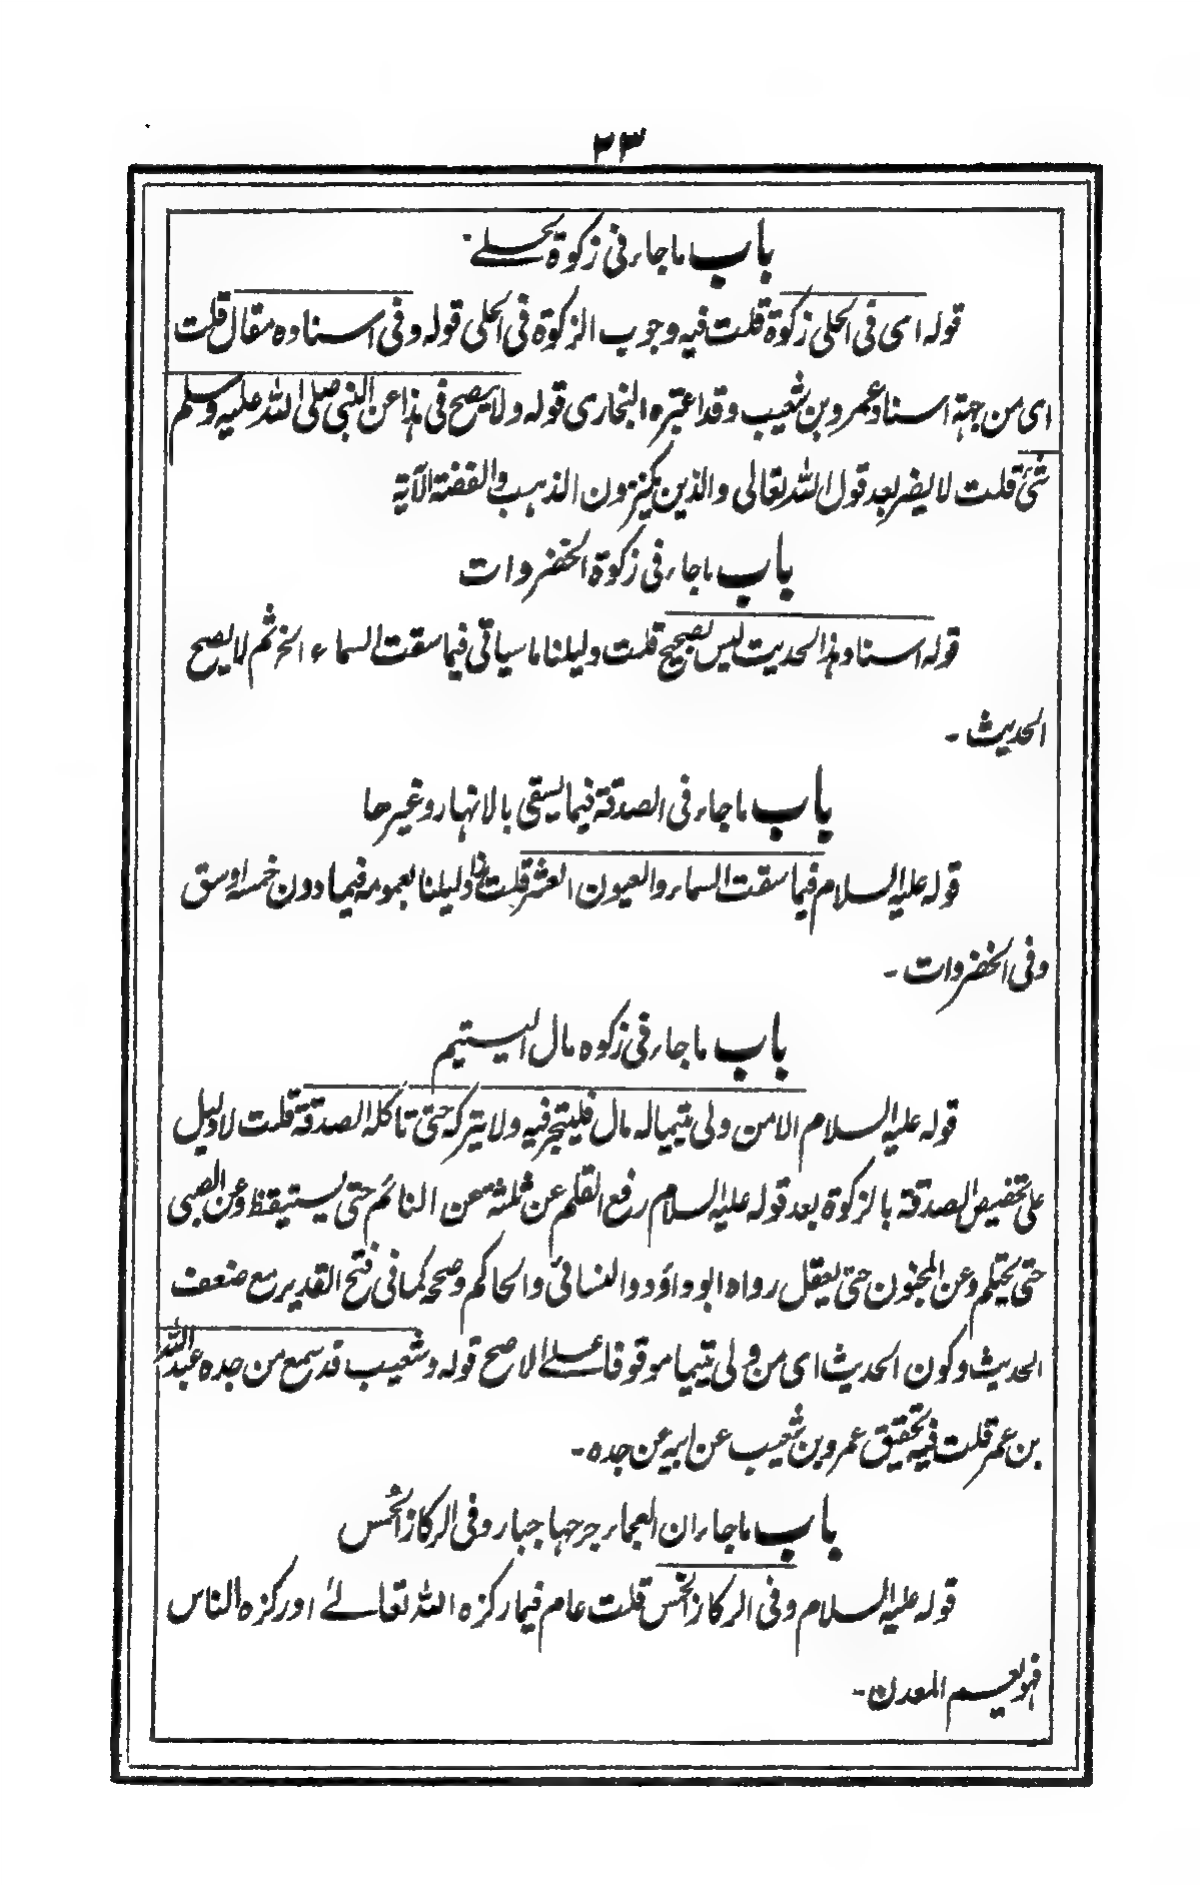 ٢٣
باب ما جاء فی زکوة الحلے
قوله ای فی الحلی زکوة قلت فیه وجوب الزکوة فی الحلی قوله وفی اسناده مقال قلت
ای من جهة اسناد عمرو بن شعیب وقد اعتبره البخاری قوله ولا یصح فی هذا عن النبی صلی الله علیه وسلم
شئ قلت لا یضر بعد قول الله تعالی والذین یکنزون الذهب والفضة الآیة
باب ما جاء فی زکوة الخضروات
قوله اسناد هذا الحدیث لیس بصحیح قلت دلیلنا ما سیاتی فیما سقت السماء الخ ثم لا یصح
الحدیث -
باب ما جاء فی الصدقة فیما یسقی بالانهار وغیرها
قوله علیه السلام فیما سقت السماء والعیون العشر قلت هذا دلیلنا بعمومه فیما دون خمسة اوسق
وفی الخضروات -
باب ما جاء فی زکوه مال الیتیم
قوله علیه السلام الا من ولی یتیما له مال فلیتجر فیه ولا یترکه حتی تاکله الصدقة قلت لا دلیل
علی تخصیص الصدقة بالزکوة بعد قوله علیه السلام رفع القلم عن ثلثة عن النائم حتی یستیقظ وعن الصبی
حتی یحتلم وعن المجنون حتی یعقل رواه ابو داؤد والنسائی والحاکم وصححه کما فی فتح القدیر مع ضعف
الحدیث وکون الحدیث ای من ولی یتیما موقوفا علے الاصح قوله وشعیب قد سمع من جده عبد الله
بن عمر قلت فیه تحقیق عمرو بن شعیب عن ابیه عن جده -
باب ما جاء ان العجماء جرحها جبار وفی الرکاز الخمس
قوله علیه السلام وفی الرکاز الخمس قلت عام فیما رکزه الله تعالے او رکزه الناس
فهو یعم المعدن -